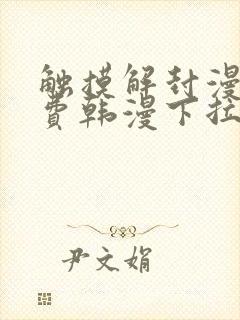 触摸解封漫
费韩漫下拉
尹文娟